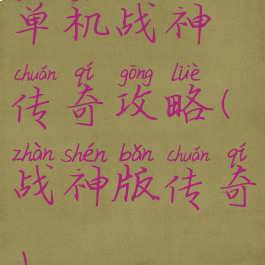 单机战神
chuán qí gōng lüè
传奇攻略(
zhàn shén bǎn chuán qí
战神版传奇
)